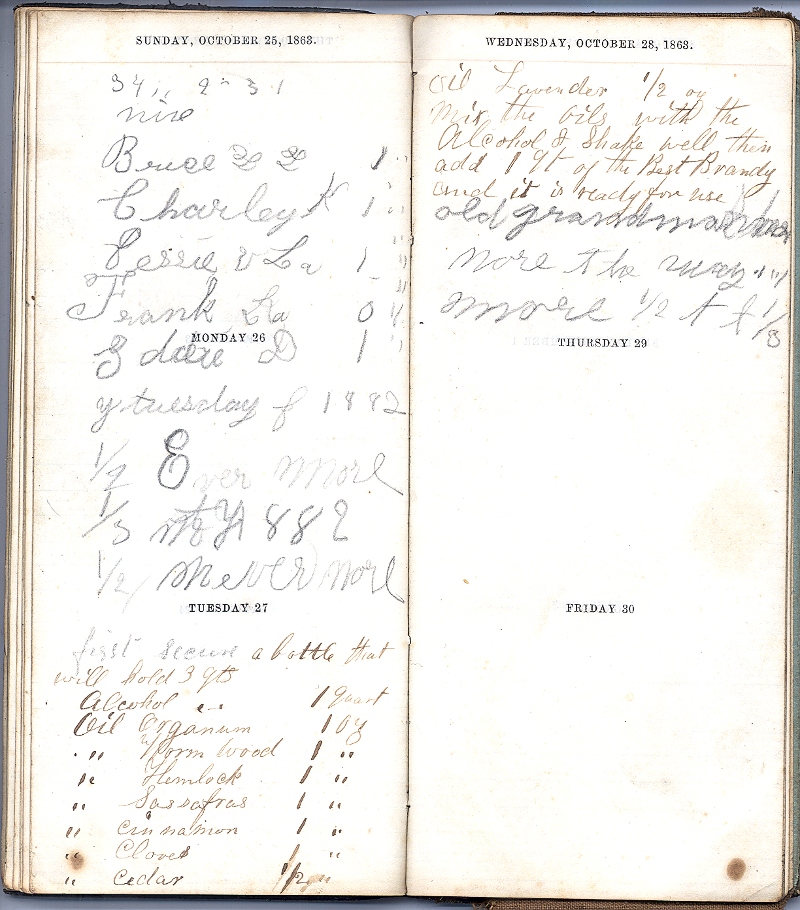 SUNDAY, OCTOBER 25, 1863.
34,, 2" 31
nine
Bruce 1 "
Charley K 1 "
Bessie & La 1 "
Frank La 0 "
MONDAY 26
D 1 "
y tuesday f 1882
1/2 Ever more
1/3 my 1882
1/2 Never More
TUESDAY 27
first secure a bottle that
will hold 3 qts
Alcohol " 1 quart
Oil Organum 1 oz
" Worm Wood 1 "
" Hemlock 1 "
" Sassafras 1 "
" Cinnamon 1 "
" Cloves 1 "
" Cedar 1/2 "
WEDNESDAY, OCTOBER 28, 1863.
Oil Lavender 1/2 oz
Mix the Oils with the
Alcohol & Shake well then
add 1 qt of the Best Brandy
and it is ready for use
old grandma
nore the
more 1/2 1/3
THURSDAY 29
FRIDAY 30